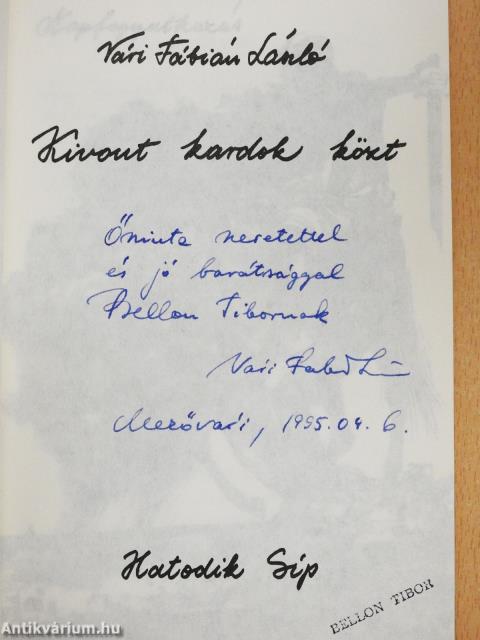 Vári Fábián László
Kivont kardok közt
Őszinte szeretettel
és jó barátsággal
Bellon Tibornak
Vári Fábián L
Mezővári, 1995.04.6.
Hatodik Síp
BELLON TIBOR
Antikvárium.hu